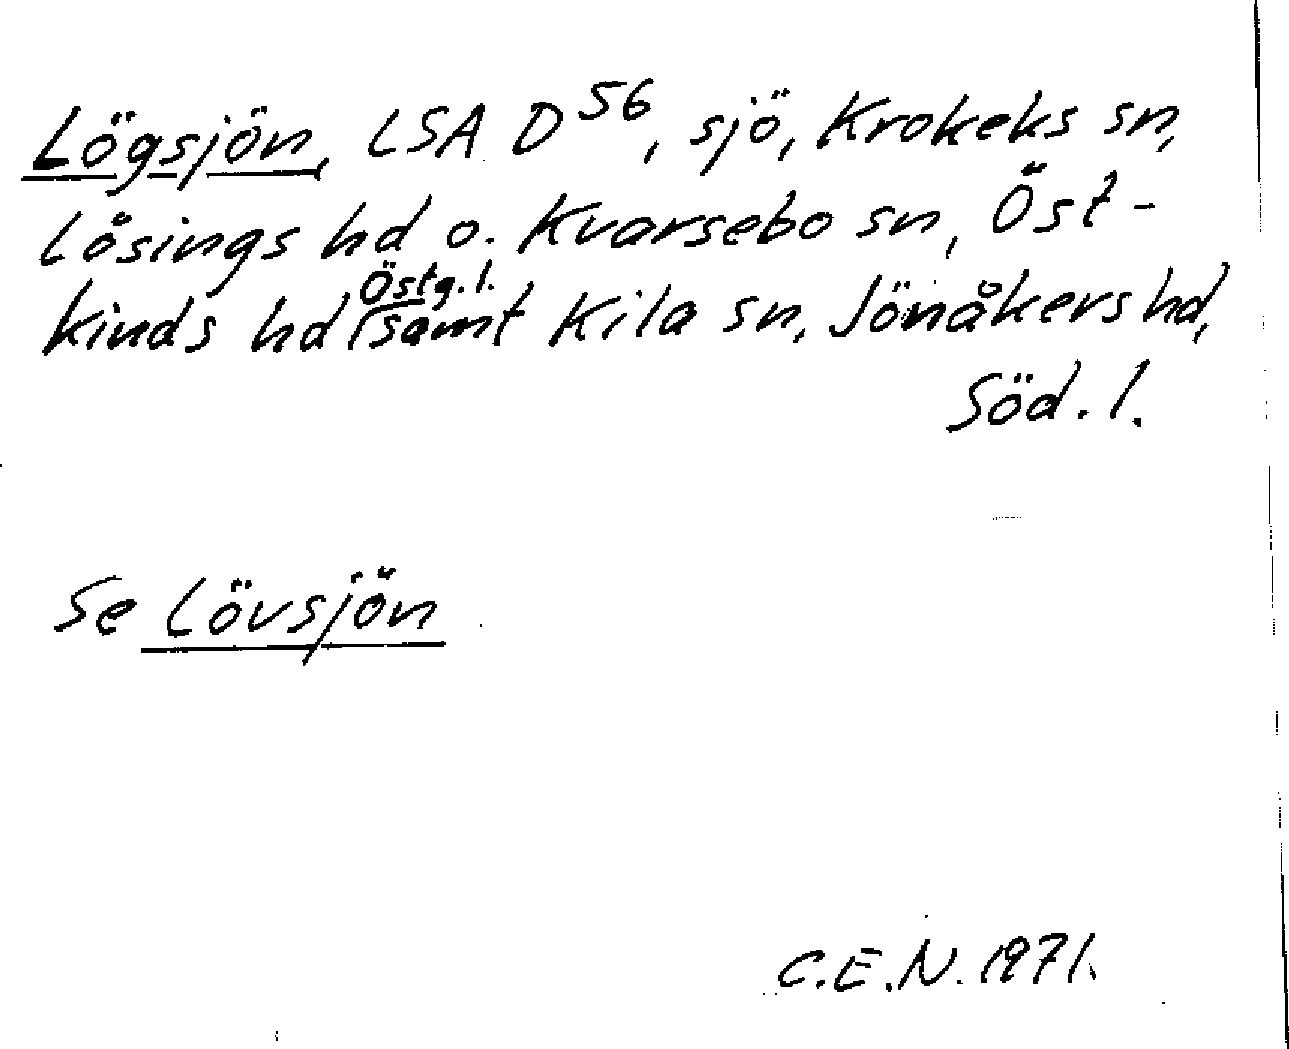 Lögsjön, LSA D 56, sjö, Krokeks sn,
Lösings hd o. Kvarsebo sn, Öst-
kinds hd Östg.l. samt Kila sn, Jönåkers hd,
Söd. l.
Se Lövsjön
C.E.N. 1971.